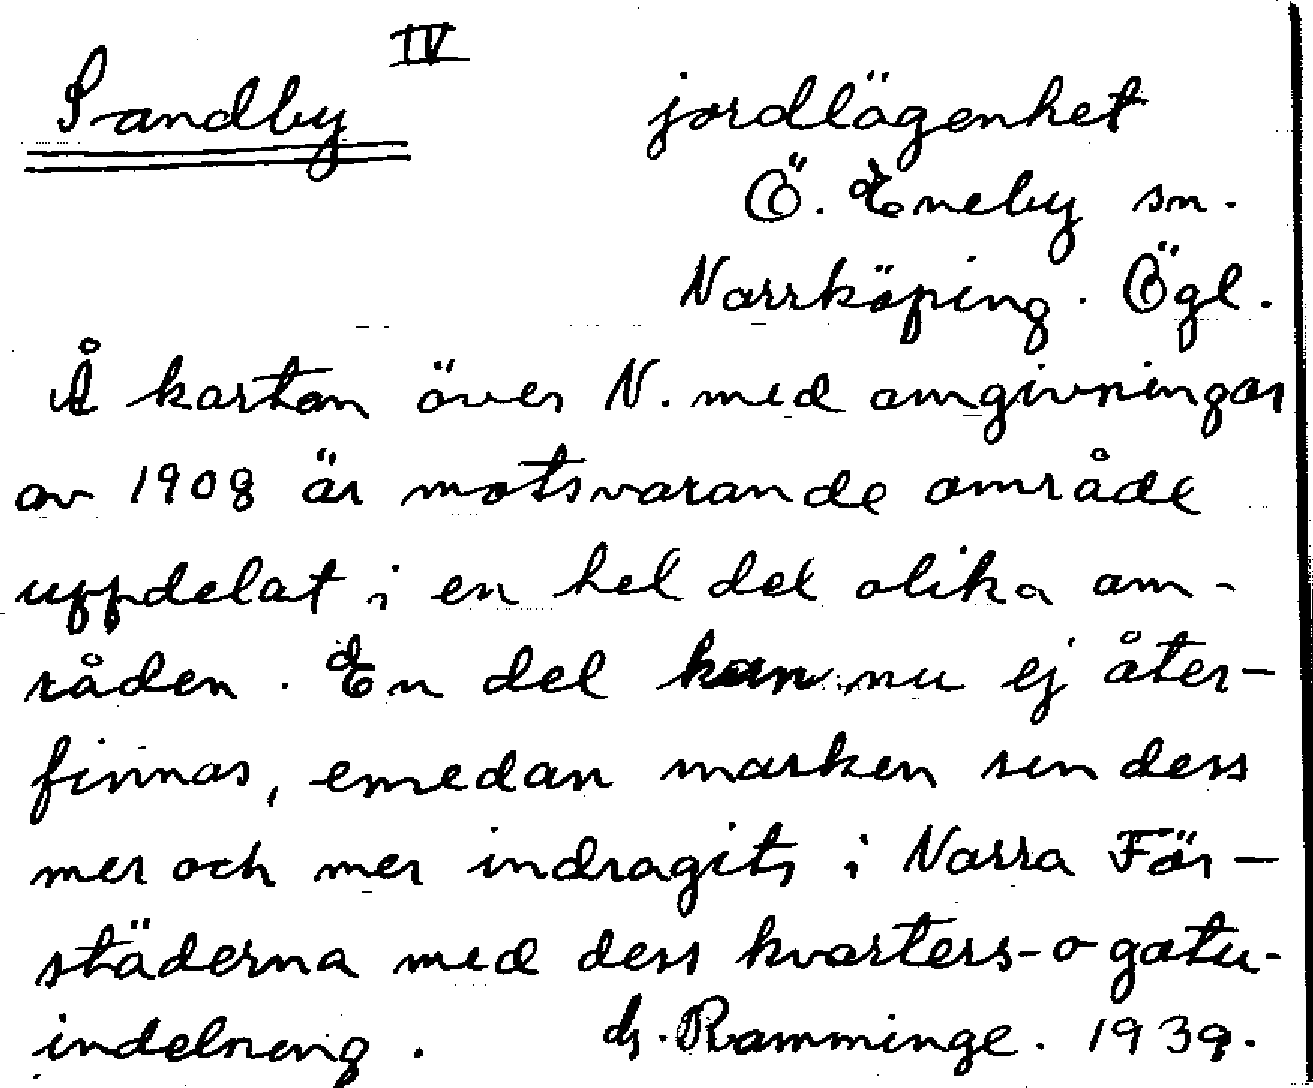 IV
Sandby jordlägenhet
Ö. Eneby sn.
Norrköping. Ögl.
Å kartan över N. med omgivningar
av 1908 är motsvarande område
uppdelat i en hel del olika om-
råden. En del kan nu ej åter-
finnas, emedan marken sen dess
mer och mer indragits i Norra För-
städerna med dess kvarters- o gatu-
indelning. Ramminge. 1939.